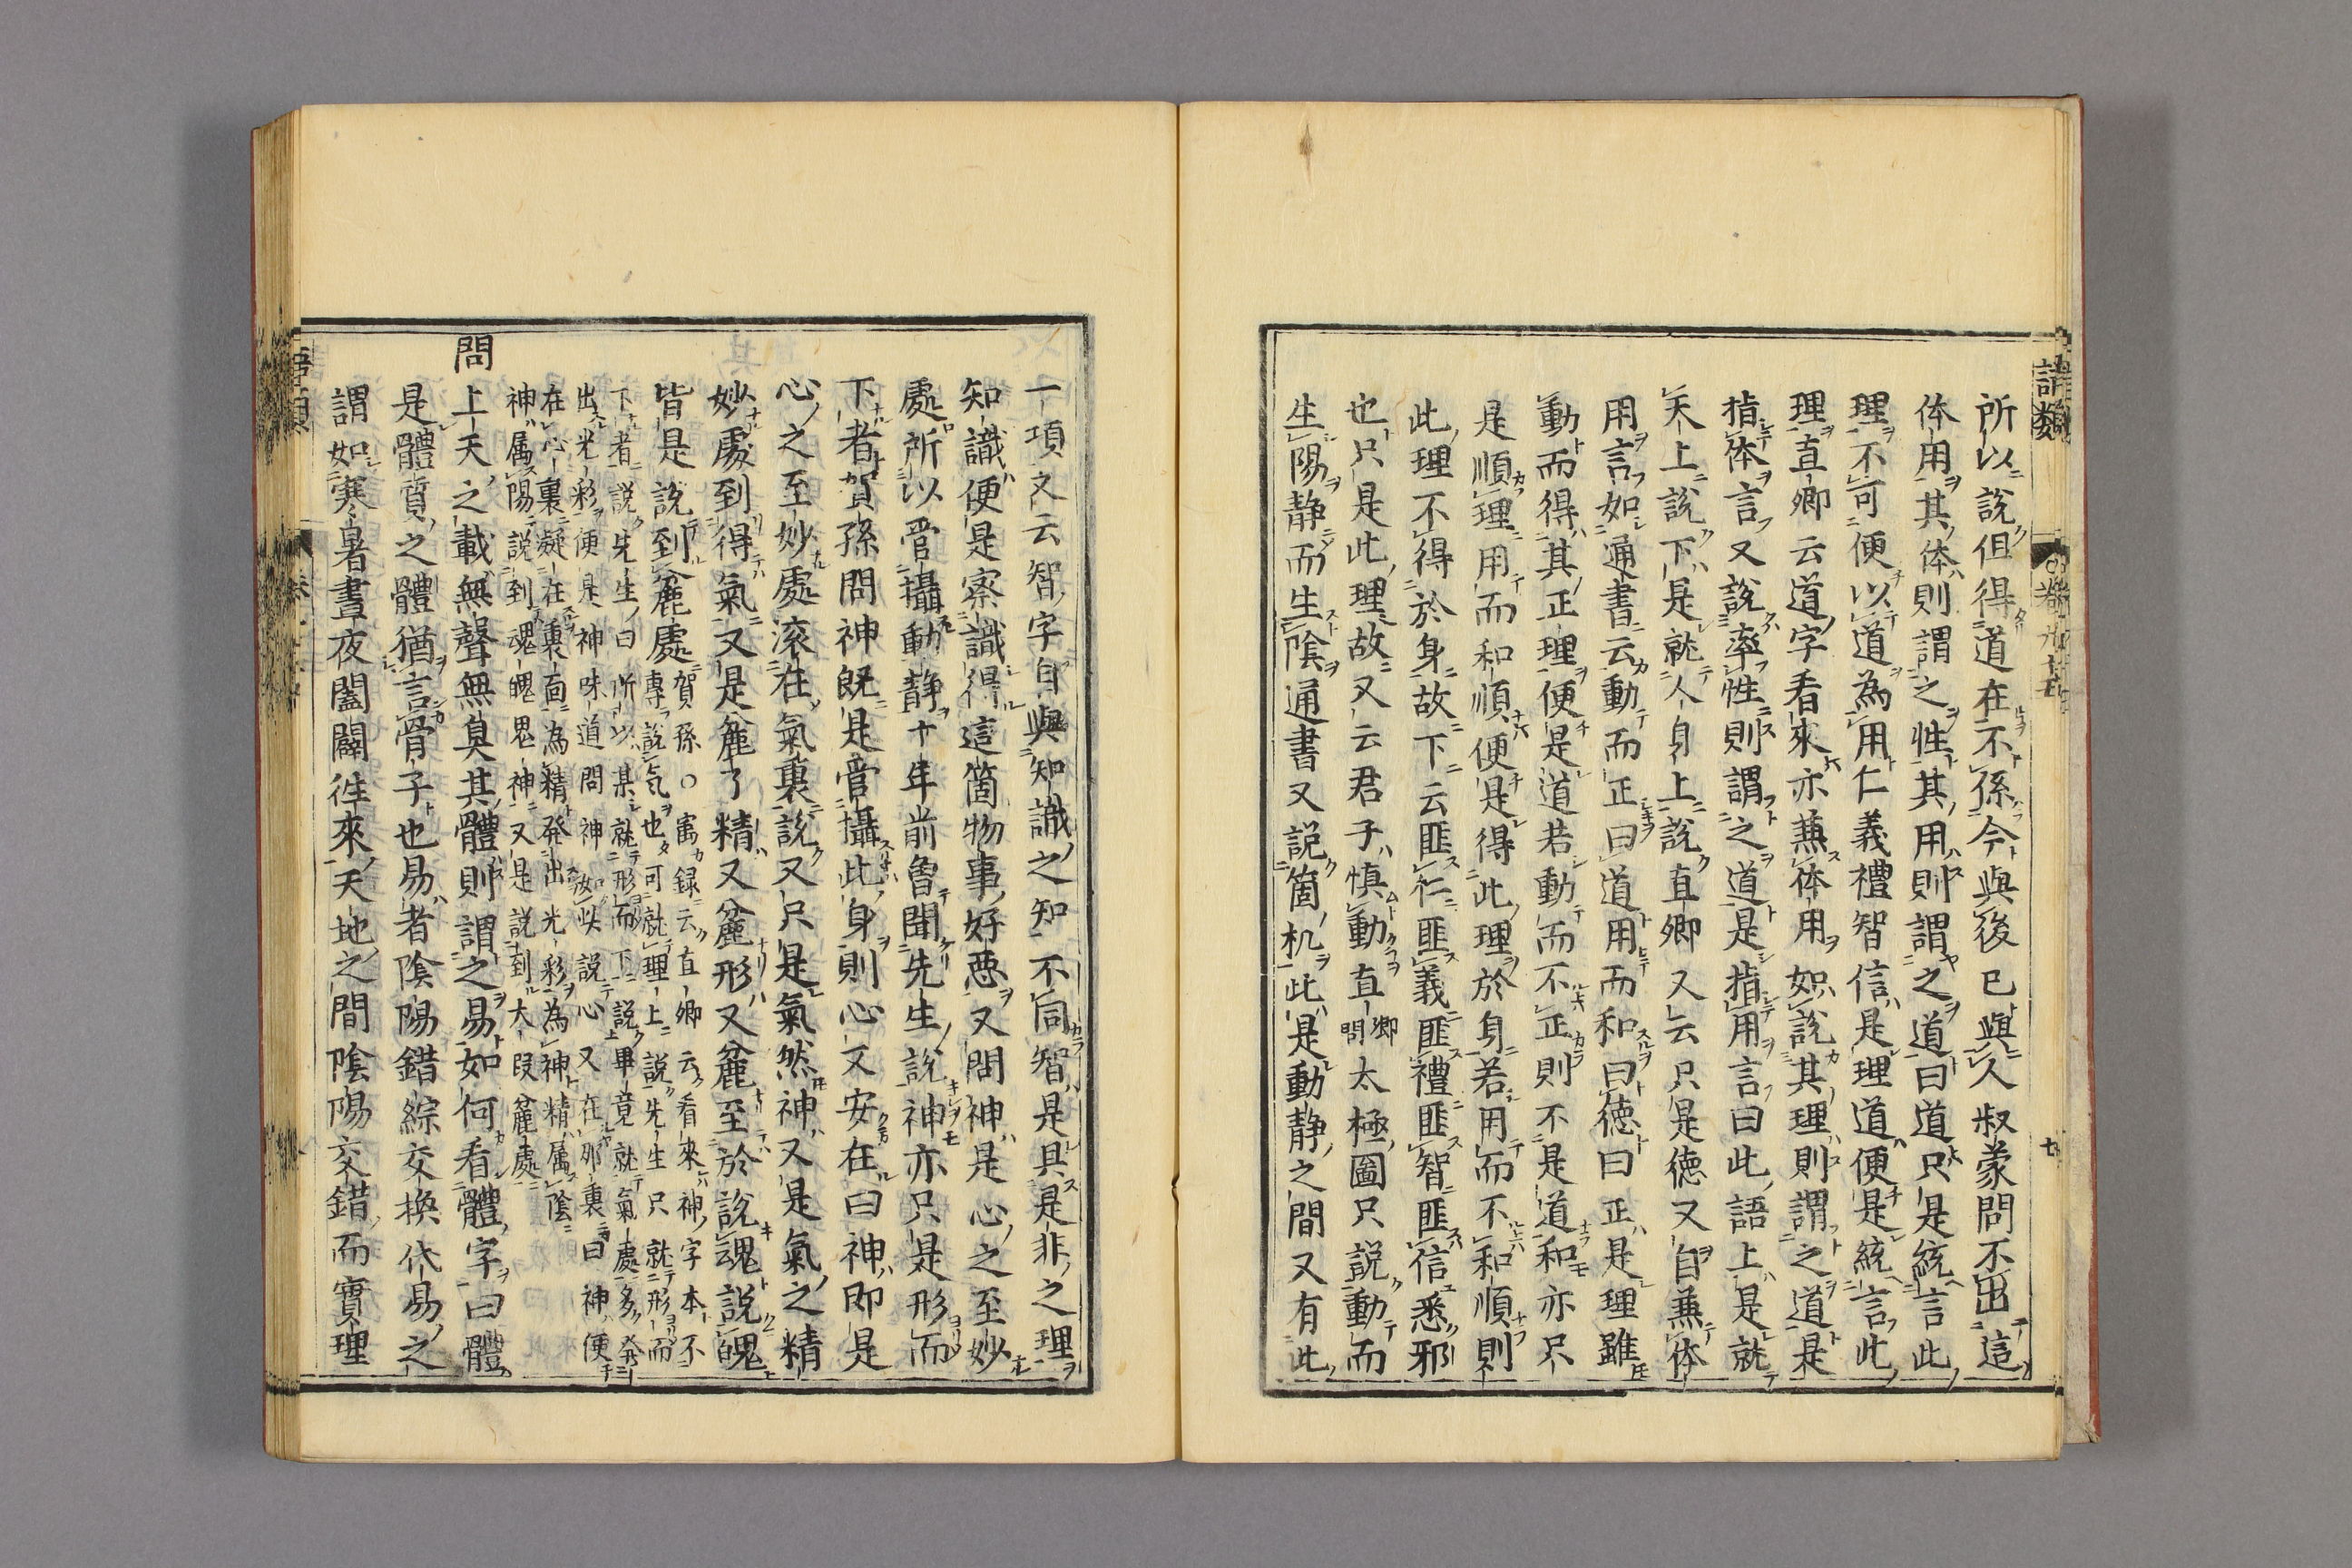 語類
卷九十五
七
所以說但得道在不係今與後已與人叔蒙問不出這
体用其体則謂之性其用則謂之道曰道只是統言此
理不可便以道為用仁義禮智信是理道便是統言此
理直卿云道字看來亦兼体用如說其理則謂之道是
指体言又說率性則謂之道是指用言曰此語上是就
天上說下是就人身上說直卿又云只是德又自兼体
用言如通書云動而正曰道用而和曰德曰正是理雖
動而得其正理便是道若動而不正則不是道和亦只
是順理用而和順便是得此理於身若用而不和順則
此理不得於身故下云匪仁匪義匪禮匪智匪信悉邪
也只是此理故又云君子慎動直卿問太極圖只說動而
生陽静而生陰通書又說箇机此是動静之間又有此
一項又云智字自與知識之知不同智是具是非之理
知識便是察識得這箇物事好惡又問神是心之至妙
處所以管攝動静十年前曾聞先生說神亦只是形而
下者賀孫問神既是管攝此身則心又安在曰神即是
心之至妙處滚在氣裏說又只是氣然神又是氣之精
妙處到得氣又是麄了精又麄形又麄至於說魂說魄
皆是說到麄處賀孫○寓録云直卿云看來神字本不
專說气也可就理上說先生只就形而
下者說先生曰所以某就形而下說畢竟就氣處多發
出光彩便是神味道問神如此說心又在那裏曰神便
在心裏凝在裏面為精發出光彩為神精属陰
神属陽說到魂魄鬼神又是說到大段麄處
問
上天之載無聲無臭其體則謂之易如何看體字曰體
是體質之體猶言骨子也易者陰陽錯綜交換代易之
謂如寒暑晝夜闔闢往來天地之間陰陽交錯而實理
語類